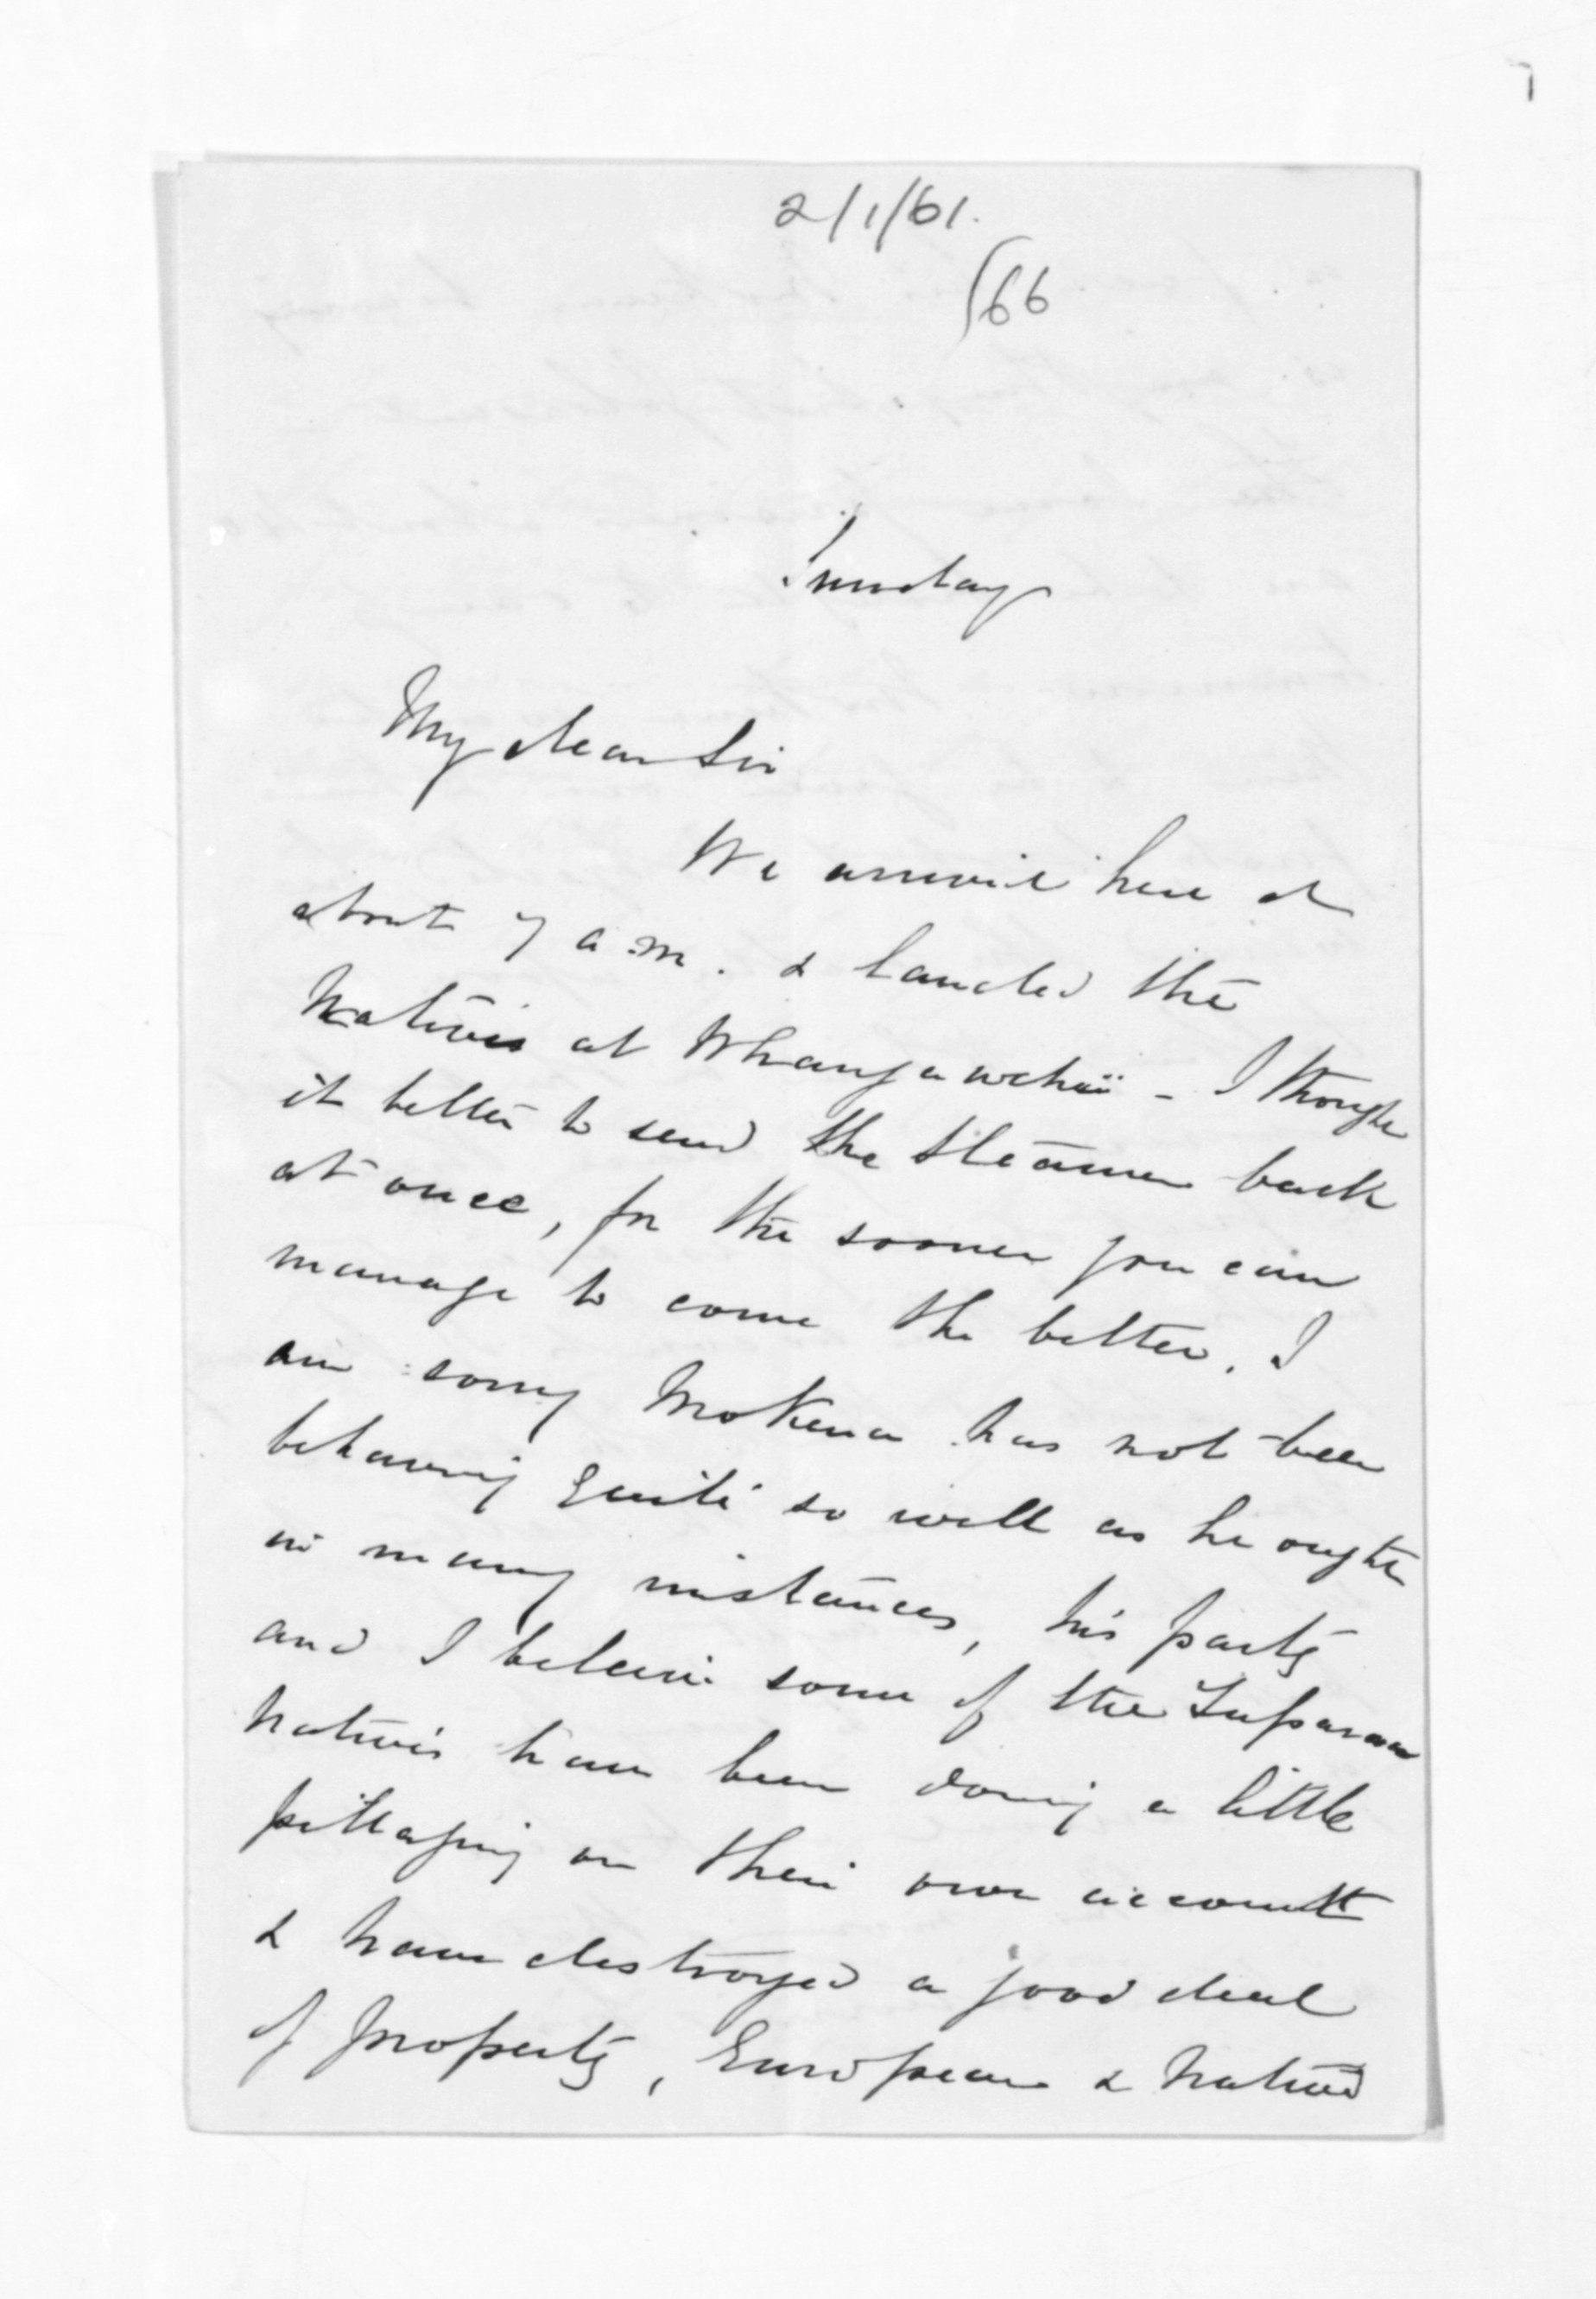 2/1/61.
(66
Tuesday
My dear Sir
We arrived here at
about 7 a.m. & landed the
Natives at Whangawehi - I thought
it better to send the steamer back
at once, for the sooner you can
manage to come the better. I
am sorry Mokena has not been
behaving quite so well as he ought
in many instances, his party
and I beleive some of the
natives have been doing a little
pillaging on their own account
& have destroyed a good deal
of property, European & Native